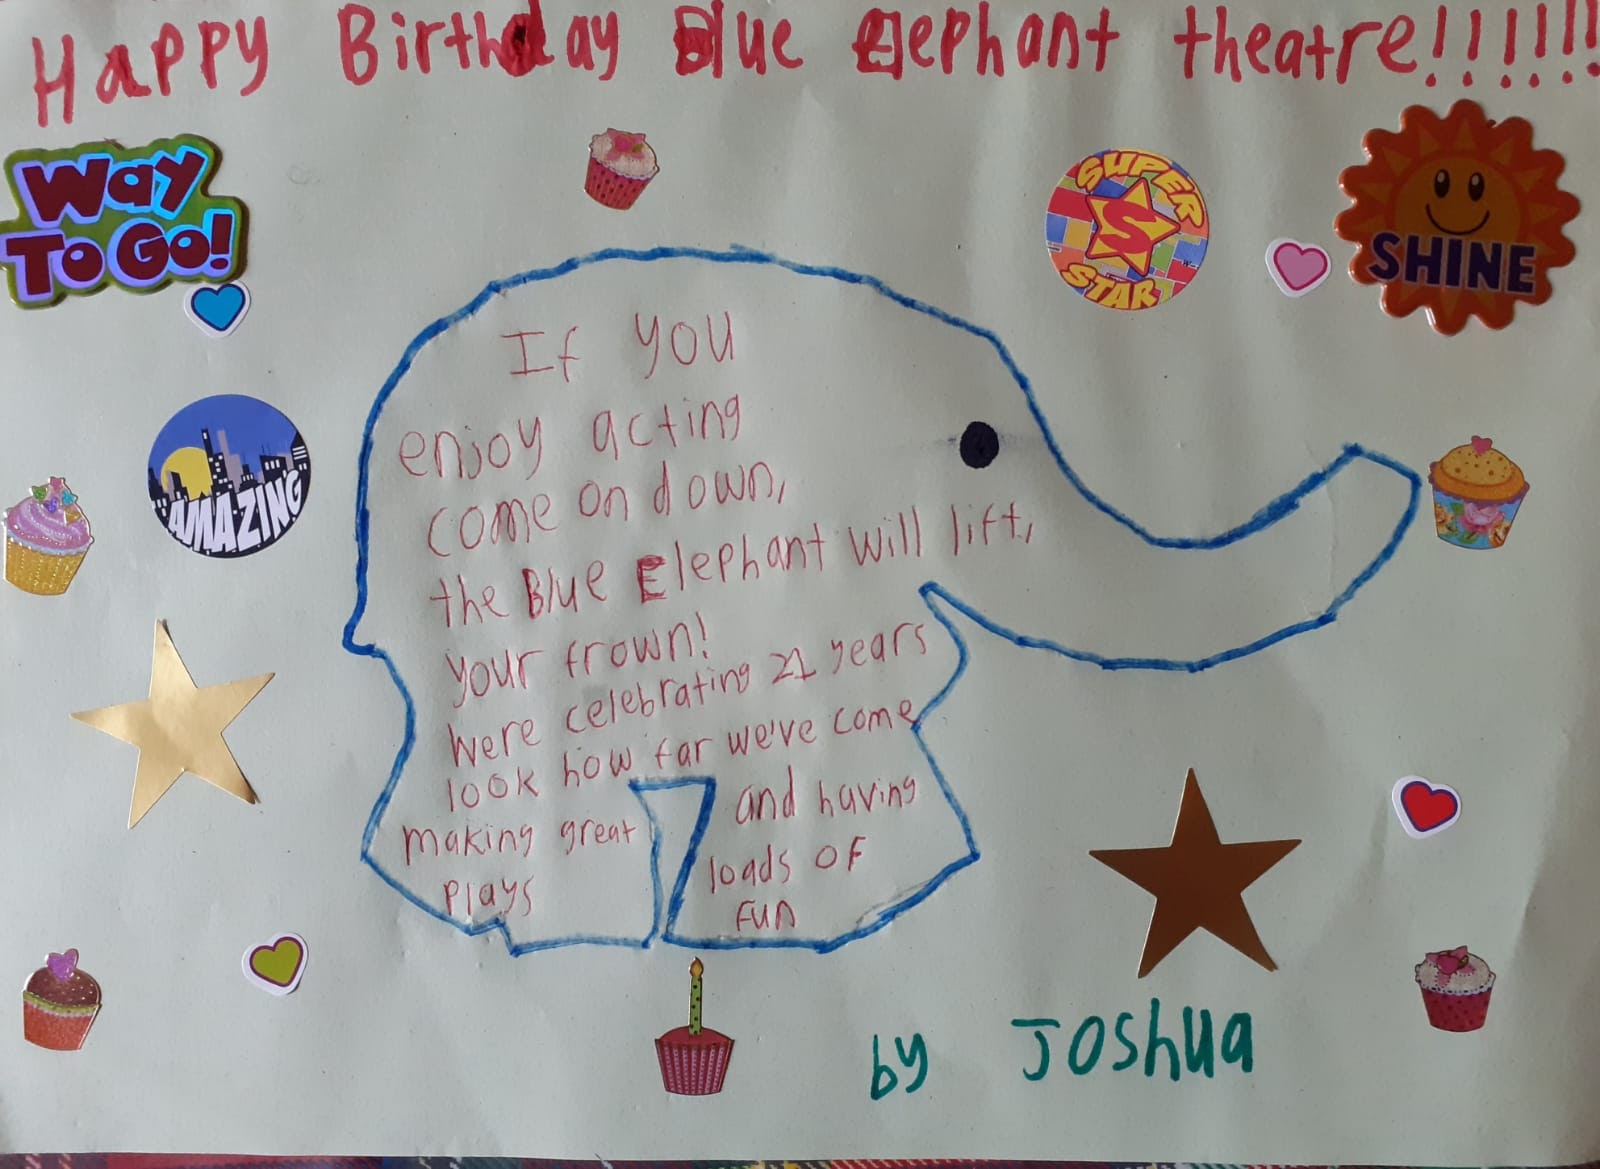 Happy Birthday Blue Elephant theatre!!!!!!
Way
To Go!
SUPER
S
STAR
SHINE
AMAZING
If you
enjoy acting
come on down,
the Blue Elephant will lift,
your frown!
were celebrating 21 years
look how far we've come
making great
plays
and having
loads of
fun
by Joshua